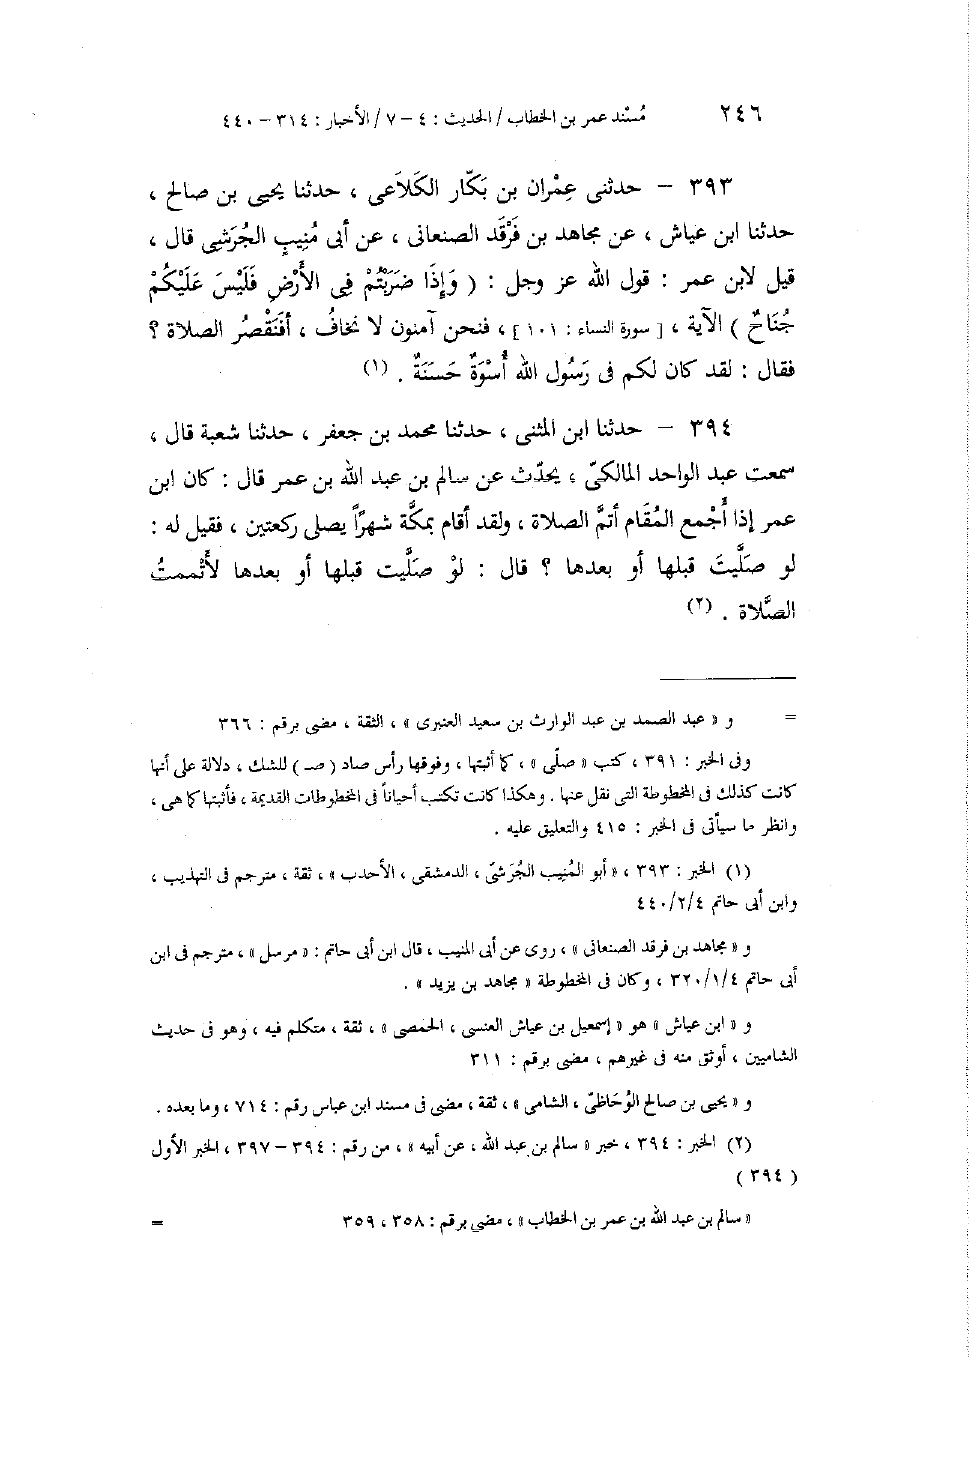 ٢٤٦ مُسْند عمر بن الخطاب / الحديث : ٤ – ٧ / الأخبار : ٣١٤ – ٤٤٠
٣٩٣ – حدثنى عِمْران بن بَكّار الكَلاَعى ، حدثنا يحيى بن صالح ،
حدثنا ابن عياش ، عن مجاهد بن فَرْقَد الصنعانى ، عن أبى مُنِيبٍ الجُرَشىِ قال ،
قيل لابن عمر : قول الله عز وجل : ( وَإِذَا ضَرَبْتُمْ فِى الأَرْضِ فَلَيْسَ عَلَيْكُمْ
جُنَاحٌ ) الآية ، [ سورة النساء : ١٠١ ] ، فنحن آمنون لا نخافُ ، أفَنَقْصُر الصلاة ؟
فقال : لقد كان لكم فى رَسُول الله أُسْوَةٌ حَسَنَةٌ . (١)
٣٩٤ – حدثنا ابن المثنى ، حدثنا محمد بن جعفر ، حدثنا شعبة قال ،
سمعت عبد الواحد المالكىّ ، يحدّث عن سالم بن عبد الله بن عمر قال : كان ابن
عمر إذا أُجْمع المُقَام أتمَّ الصلاة ، ولقد أقام بمكَّة شهرًا يصلى ركعتين ، فقيل له :
لو صَلَّيتَ قبلها أو بعدها ؟ قال : لوْ صَلَّيت قبلها أو بعدها لأَتْممتُ
الصَّلاة . (٢)
= و « عبد الصمد بن عبد الوارث بن سعيد العنبرى » ، الثقة ، مضى برقم : ٣٦٦
وفى الخبر : ٣٩١ ، كتب « صلّى » ، كما أثبتها ، وفوقها رأس صاد ( صـ ) للشك ، دلالة على أنها
كانت كذلك فى المخطوطة التى نقل عنها . وهكذا كانت تكتب أحياناً فى المخطوطات القديمة ، فأثبتها كما هى ،
وانظر ما سيأتى فى الخبر : ٤١٥ والتعليق عليه .
(١) الخبر : ٣٩٣ ، « أبو المُنِيب الجُرَشىّ ، الدمشقى ، الأحدب » ، ثقة ، مترجم فى التهذيب ،
وابن أبى حاتم ٤/٢/٤٤٠
و « مجاهد بن فرقد الصنعانى » ، روى عن أبى المنيب ، قال ابن أبى حاتم : « مرسل » ، مترجم فى ابن
أبى حاتم ٤/١/٣٢٠ ، وكان فى المخطوطة « مجاهد بن يزيد » .
و « ابن عياش » هو « إسمعيل بن عياش العنسى ، الحمصى » ، ثقة ، متكلم فيه ، وهو فى حديث
الشاميين ، أوثق منه فى غيرهم ، مضى برقم : ٣١١
و « يحيى بن صالح الوُحَاظىّ ، الشامى » ، ثقة ، مضى فى مسند ابن عباس رقم : ٧١٤ ، وما بعده .
(٢) الخبر : ٣٩٤ ، خبر « سالم بن عبد الله ، عن أبيه » ، من رقم : ٣٩٤ – ٣٩٧ ، الخبر الأول
( ٣٩٤ )
« سالم بن عبد الله بن عمر بن الخطاب » ، مضى برقم : ٣٥٨ ، ٣٥٩ =